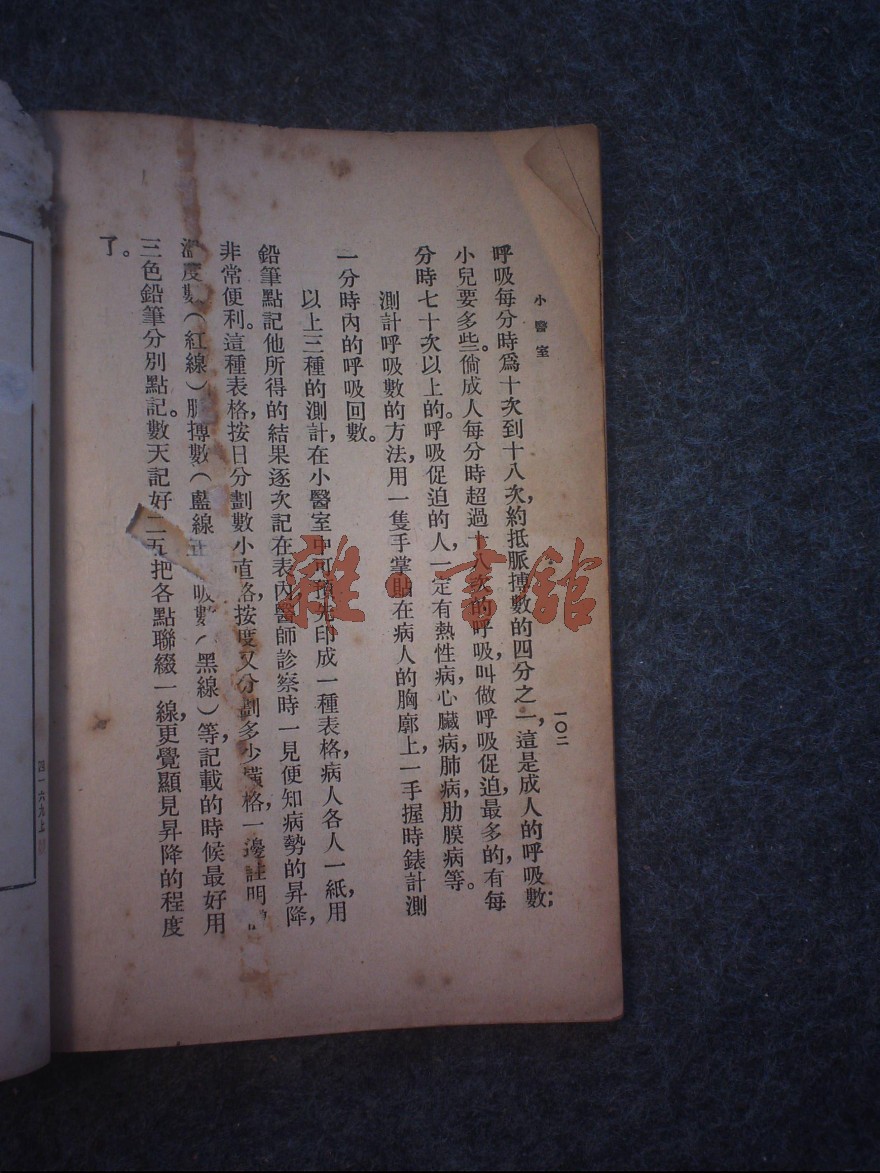 小醫室
一〇二
呼吸每分時爲十次到十八次，約抵脈搏數的四分之一，這是成人的呼吸數；
小兒要多些。倘成人每分時超過十八次的呼吸，叫做呼吸促迫，最多的，有每
分時七十次以上的。呼吸促迫的人，一定有熱性病，心臟病，肺病，肋膜病等。
測計呼吸數的方法，用一隻手掌貼在病人的胸廓上，一手握時錶計測
一分時內的呼吸回數。
以上三種的測計，在小醫室中可預先印成一種表格，病人各人一紙，用
鉛筆點記他所得的結果，逐次記在表內，醫師診察時一見便知病勢的昇降，
非常便利。這種表格，按日分劃數小直格，按度又分劃多少橫格，一邊註明
溫度數（紅線）脈搏數（藍線 吸數（黑線）等，記載的時候，最好用
三色鉛筆分別點記。數天記好 把各點聯綴一線，更覺顯見昇降的程度
了。
四一六九上
雜·書舘